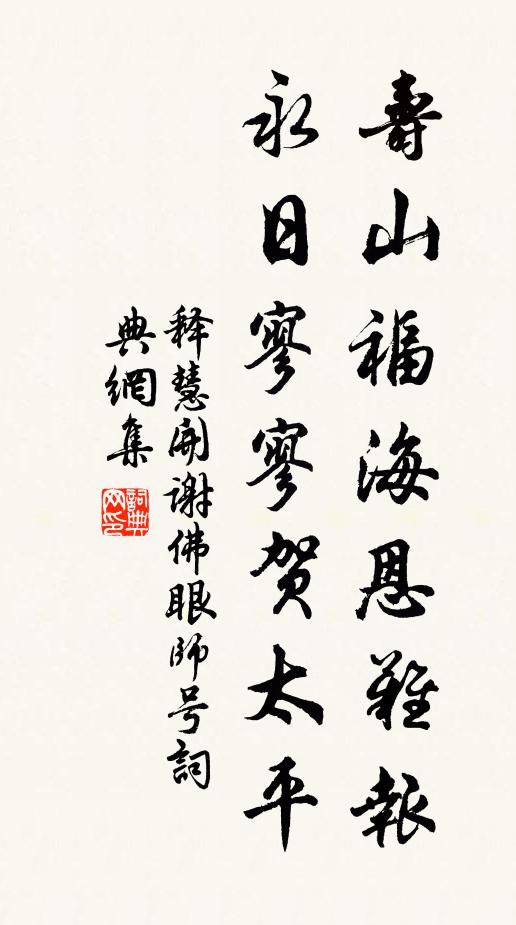 壽山福海恩難報
永日寥寥賀太平
释慧開謝佛眼師号詞
典網集
詞典網印